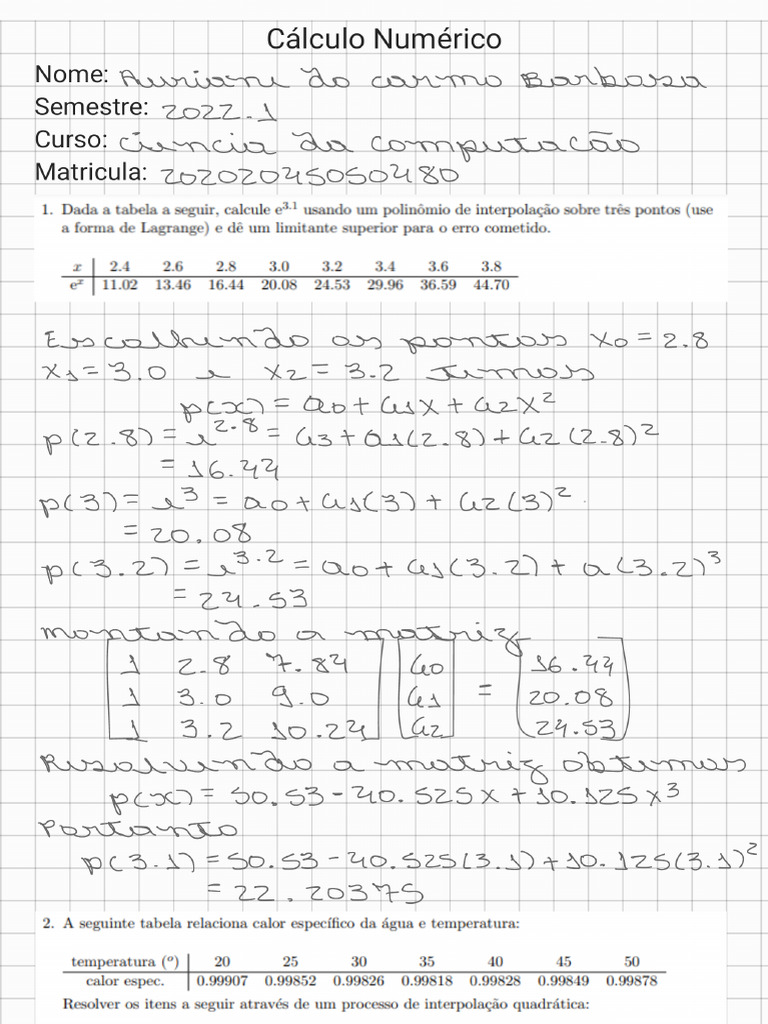 Cálculo Numérico
Nome: Auriane do carmo Barbosa
Semestre: 2022.1
Curso: Ciencia da computação
Matricula: 20202045050480
1. Dada a tabela a seguir, calcule e^3.1 usando um polinômio de interpolação sobre três pontos (use
a forma de Lagrange) e dê um limitante superior para o erro cometido.
x 2.4 2.6 2.8 3.0 3.2 3.4 3.6 3.8
e^x 11.02 13.46 16.44 20.08 24.53 29.96 36.59 44.70
Escolhendo os pontos x0 = 2.8
x1 = 3.0 e x2 = 3.2 temos
p(x) = a0 + a1x + a2x^2
p(2.8) = e^2.8 = a3 + a1(2.8) + a2(2.8)^2
= 16.44
p(3) = e^3 = a0 + a1(3) + a2(3)^2
= 20.08
p(3.2) = e^3.2 = a0 + a1(3.2) + a(3.2)^3
= 24.53
montando a matriz
1 2.8 7.84 a0 16.44
1 3.0 9.0 a1 = 20.08
1 3.2 10.24 a2 24.53
Resolvendo a matriz obtemos
p(x) = 50.53 - 40.525x + 10.125x^3
Portanto
p(3.1) = 50.53 - 40.525(3.1) + 10.125(3.1)^2
= 22.20375
2. A seguinte tabela relaciona calor específico da água e temperatura:
temperatura (º) 20 25 30 35 40 45 50
calor espec. 0.99907 0.99852 0.99826 0.99818 0.99828 0.99849 0.99878
Resolver os itens a seguir através de um processo de interpolação quadrática: